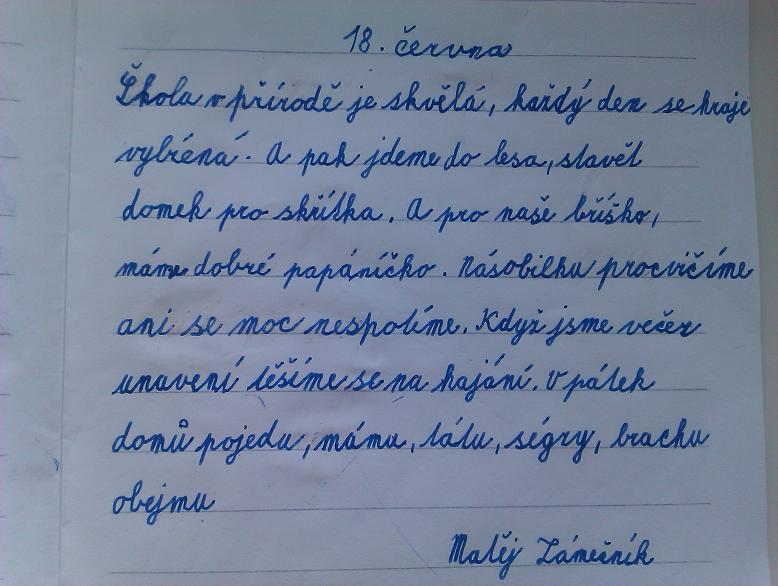 18. června
Škola v přírodě je skvělá, každý den se hraje
vybíená. A pak jdeme do lesa, stavět
domek pro skřítka. A pro naše bříško,
máme dobré papáníčko. Násobilku procvičíme
ani se moc nespotíme. Když jsme večer
unavení těšíme se na hajání. V pátek
domů pojedu, mámu, tátu, ségry, brachu
obejmu
Matěj Zámečník